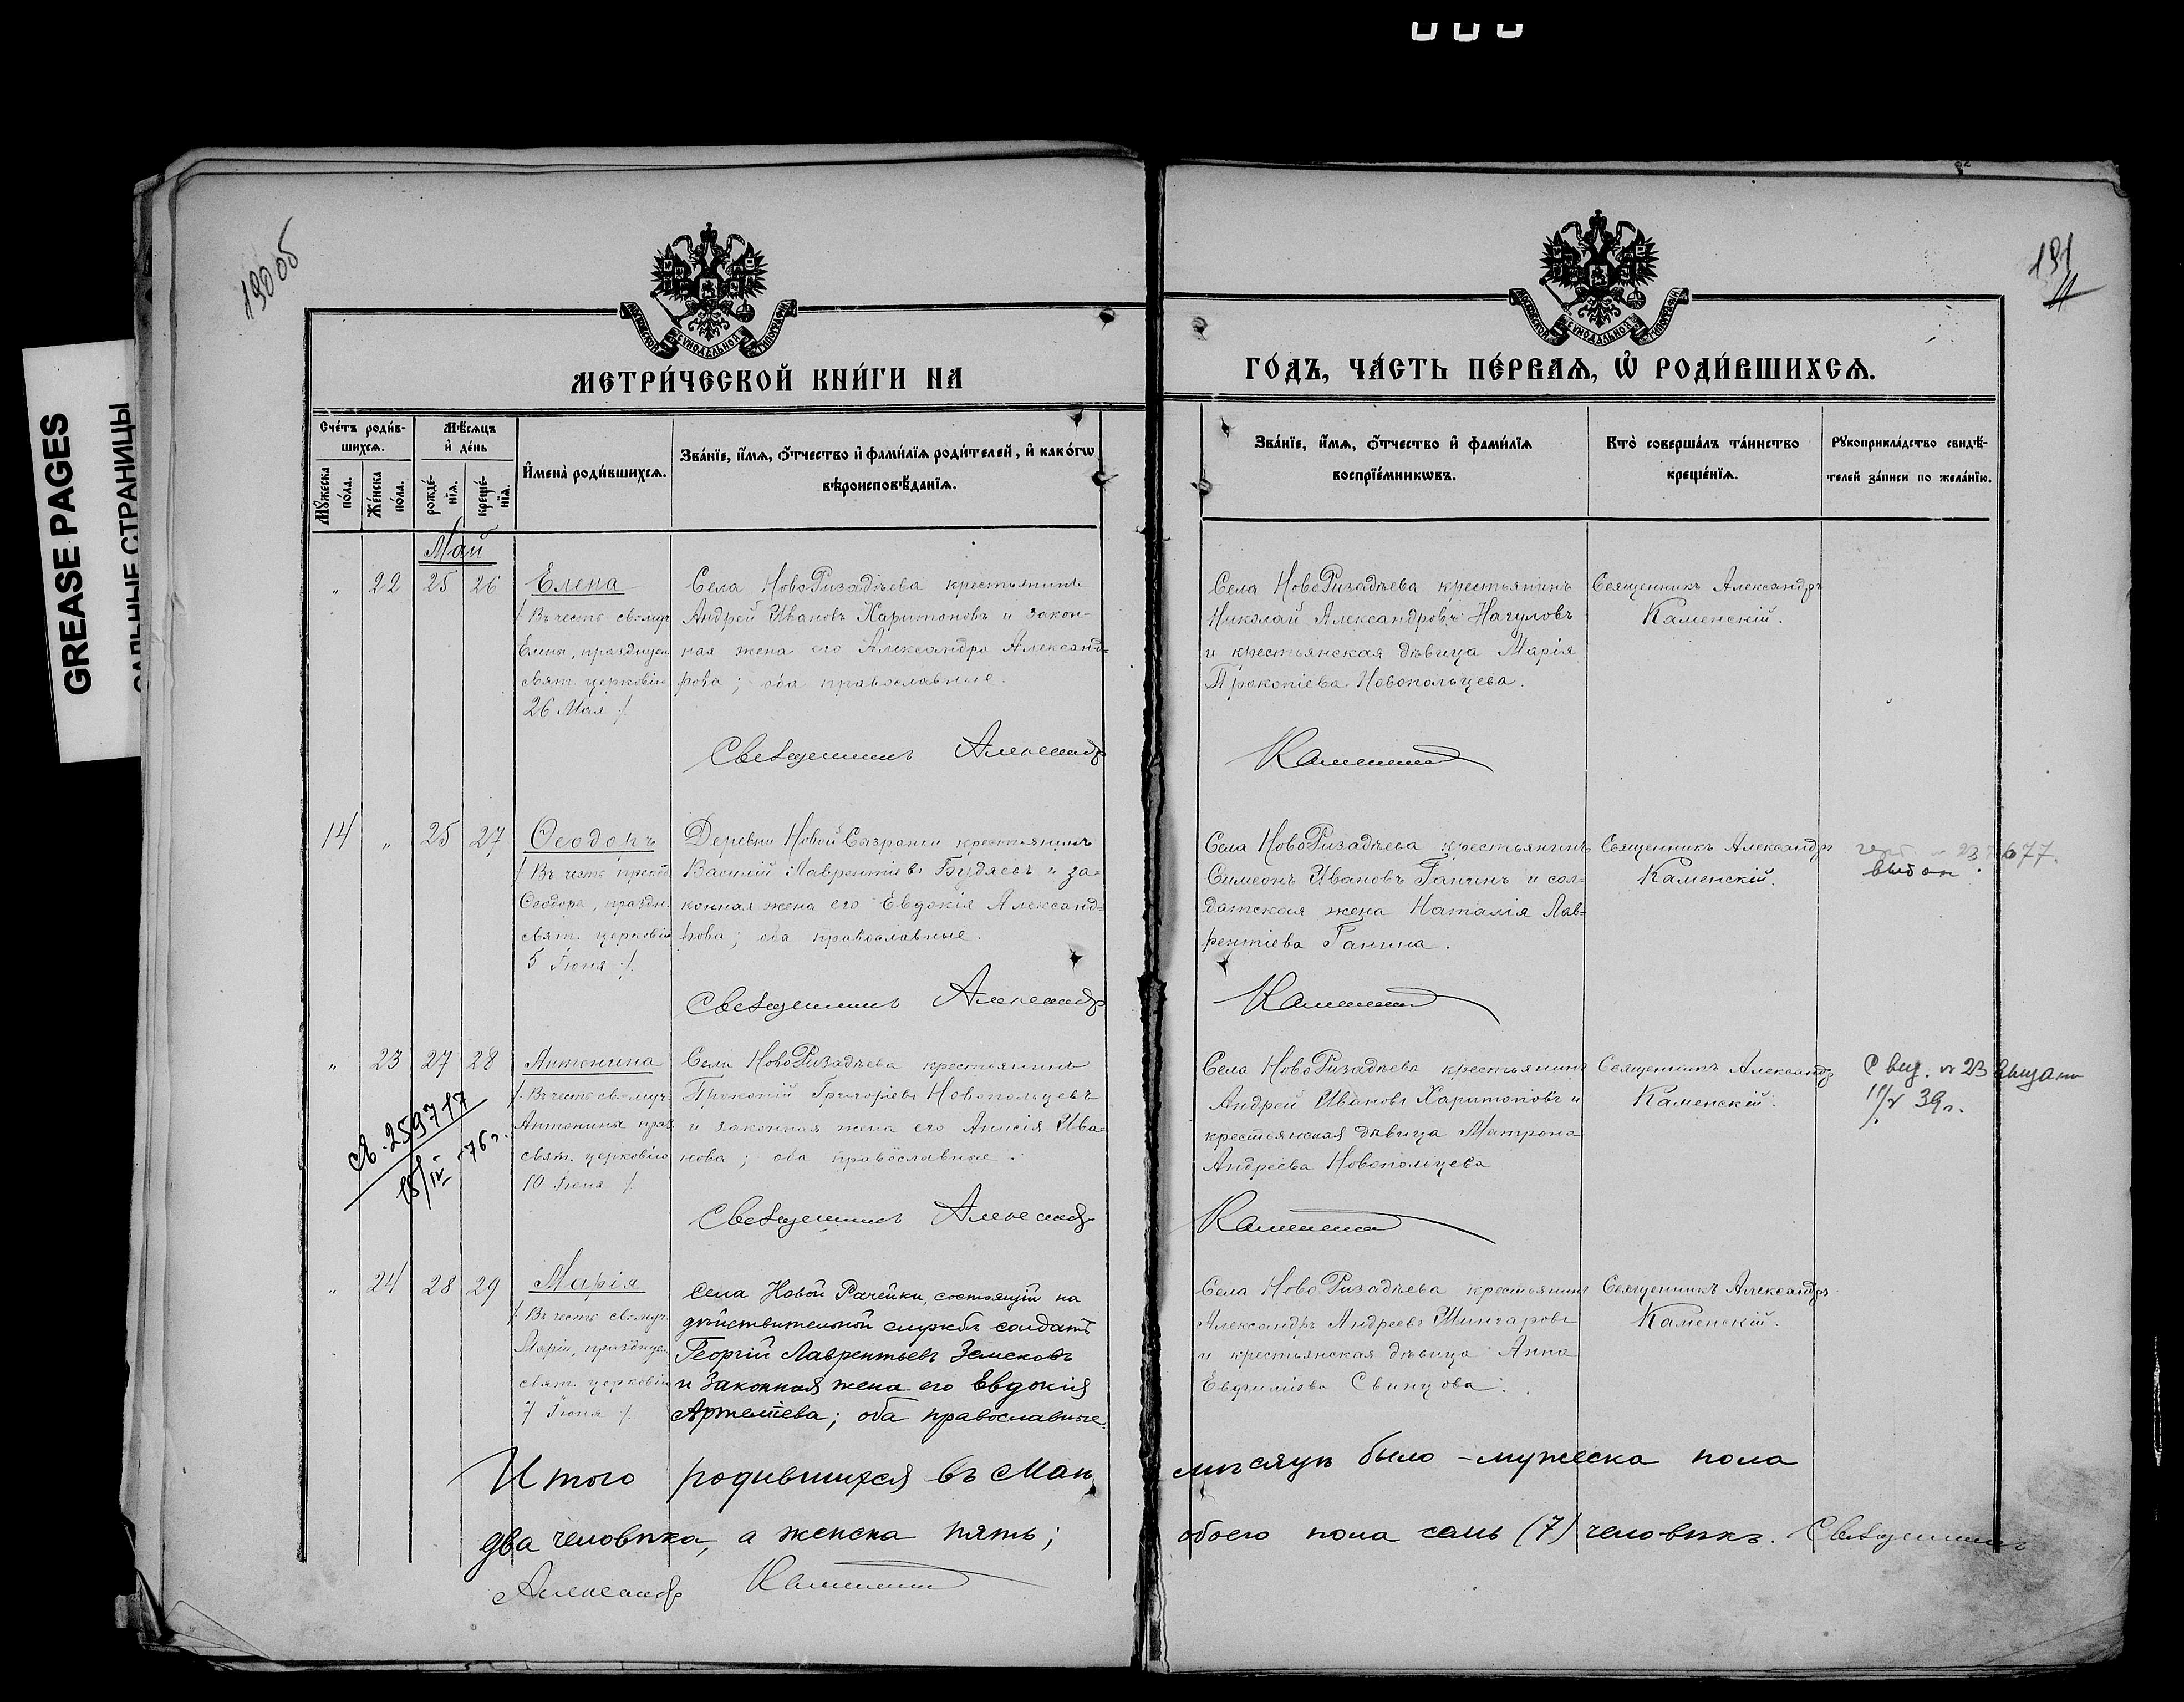 GREASE PAGES
САЛЬНЫЕ СТРАНИЦЫ
190 об
191
МОСКОВСКОЙ СѴНОДАЛЬНОЙ ТИПОГРАФІИ
МОСКОВСКОЙ СѴНОДАЛЬНОЙ ТИПОГРАФІИ
МЕТРИ́ЧЕСКОЙ КНИ́ГИ НА
ГО́ДЪ, ЧА́СТЬ ПЕ́РВАѦ, Ѡ҆ РОДИ́ВШИХСѦ.
Сче́тъ роди́в-
шихсѧ.
Мѣ́сѧцъ
и҆ де́нь
Мꙋ́жеска
по́ла.
Же́нска
по́ла.
рожде́-
нїѧ.
креще́-
нїѧ.
И҆мена̀ роди́вшихсѧ.
Зва́нїе, и҆́мѧ, ѻ҆́тчество и҆ фами́лїѧ роди́телей, и҆ како́гѡ
вѣроисповѣ́данїѧ.
Зва́нїе, и҆́мѧ, ѻ҆́тчество и҆ фами́лїѧ
воспрїе́мникѡвъ.
Кто̀ соверша́лъ та́инство
креще́нїѧ.
Рꙋкоприкла́дство свидѣ́-
телей за́писи по жела́нїю.
Май
" 22 25 26 Елена
/ Въ честь св-муч
Елены, празднуем
свят. церковію
26 Мая /.
Села НовоРизадѣева крестьянинъ
Андрей Ивановъ Харитоновъ и закон-
ная жена его Александра Александ-
рова; оба православные.
Села НовоРизадѣева крестьянинъ
Николай Александровъ Нагуловъ
и крестьянская дѣвица Марія
Прокопіева Новопольцева.
Священникъ Александръ
Каменскій.
Священникъ Александръ
Каменскій
14 " 25 27 Ѳеодоръ
/ Въ честь препод
Ѳеодора, праздн.
свят. церковію
5 Іюня /.
Деревни Новой Сызранки крестьянинъ
Василій Лаврентіевъ Будяевъ и за-
конная жена его Евдокія Александ-
рова; оба православные.
Села НовоРизадѣева крестьянинъ
Симеонъ Ивановъ Ганинъ и сол-
датская жена Наталія Лав-
рентіева Ганина.
Священникъ Александръ
Каменскій.
выдан
Священникъ Александръ
Каменскій
" 23 27 28 Антонина
/ Въ честь св-муч
Антонины праз
свят. церковію
10 Іюня /.
Села НовоРизадѣева крестьянинъ
Прокопій Григоріевъ Новопольцевъ
и законная жена его Анисія Ива-
нова; оба православные.
Села НовоРизадѣева крестьянинъ
Андрей Ивановъ Харитоновъ и
крестьянская дѣвица Матрона
Андреева Новопольцева
Священникъ Александръ
Каменскій.
св. 259717
18/IV-76 г.
Священникъ Александръ
Каменскій
" 24 28 29 Марія
/ Въ честь св-муч
Маріи, празднуем
свят. церковію
7 Іюня /.
Села Новой Рачейки, состоящій на
дѣйствительной службѣ солдатъ
Георгій Лаврентьевъ Земсковъ
и законная жена его Евдокія
Артемiева; оба православные.
Села НовоРизадѣева крестьянинъ
Александръ Андреевъ Шингаровъ
и крестьянская дѣвица Анна
Евфиміева Свинцова.
Священникъ Александръ
Каменскій.
Итого родившихся въ Маѣ мѣсяцѣ было - мужеска пола
два человѣка, а женска пять; обоего пола семь (7) человѣкъ. Священникъ
Александръ Каменскій